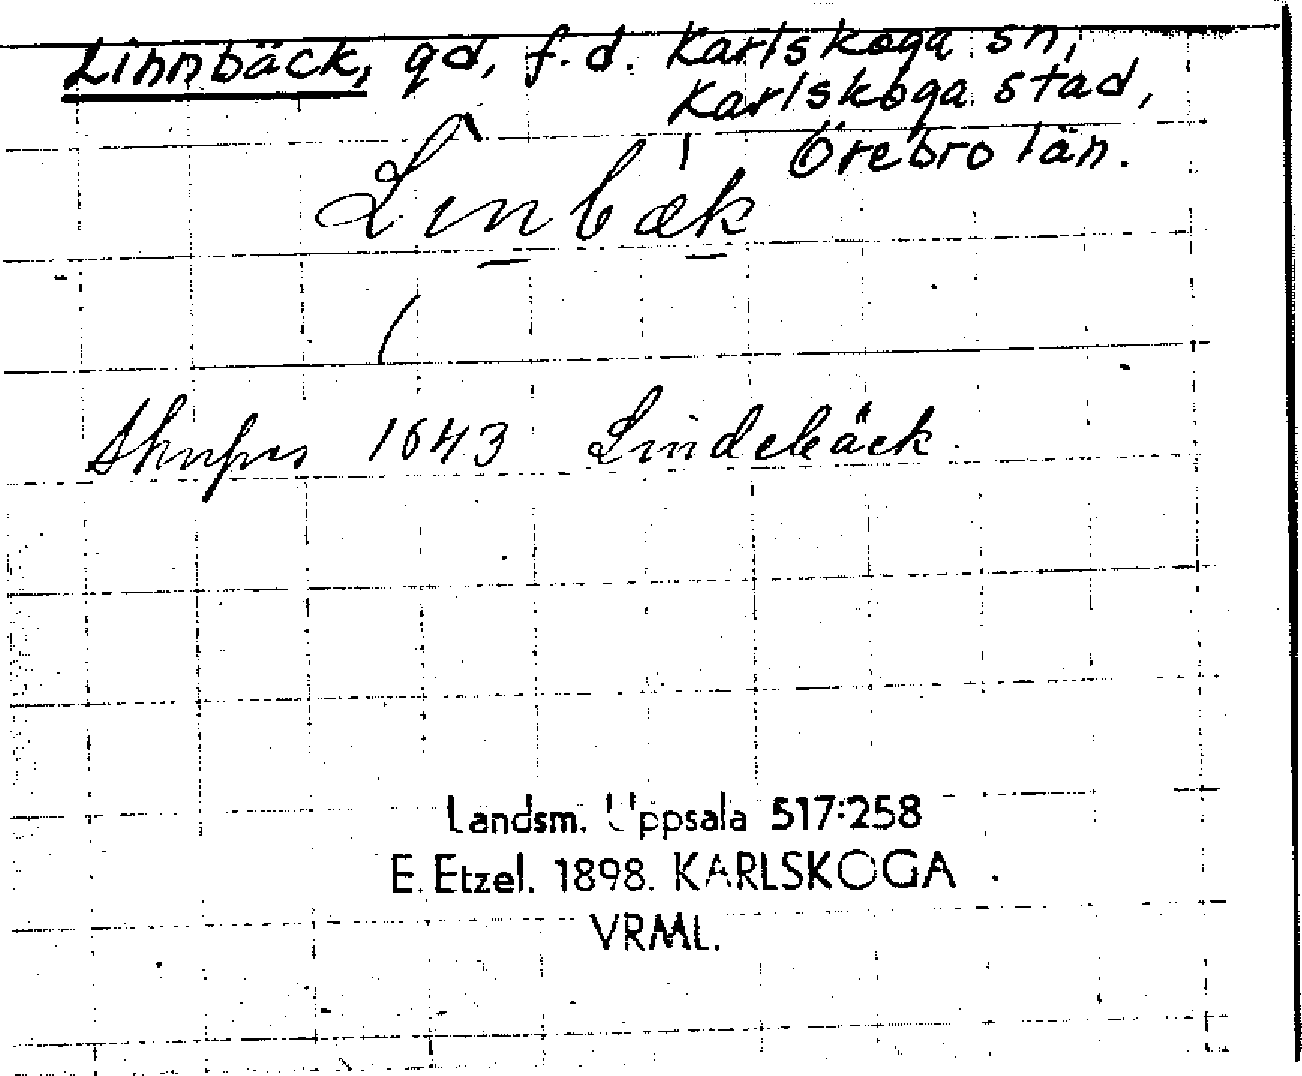 Linnbäck, gd, f.d. Karlskoga sn,
Karlskoga stad,
Örebro län.
Linbæk
1643 Lindebäck
Landsm. Uppsala 517:258
E. Etzel. 1898. KARLSKOGA
VRML.